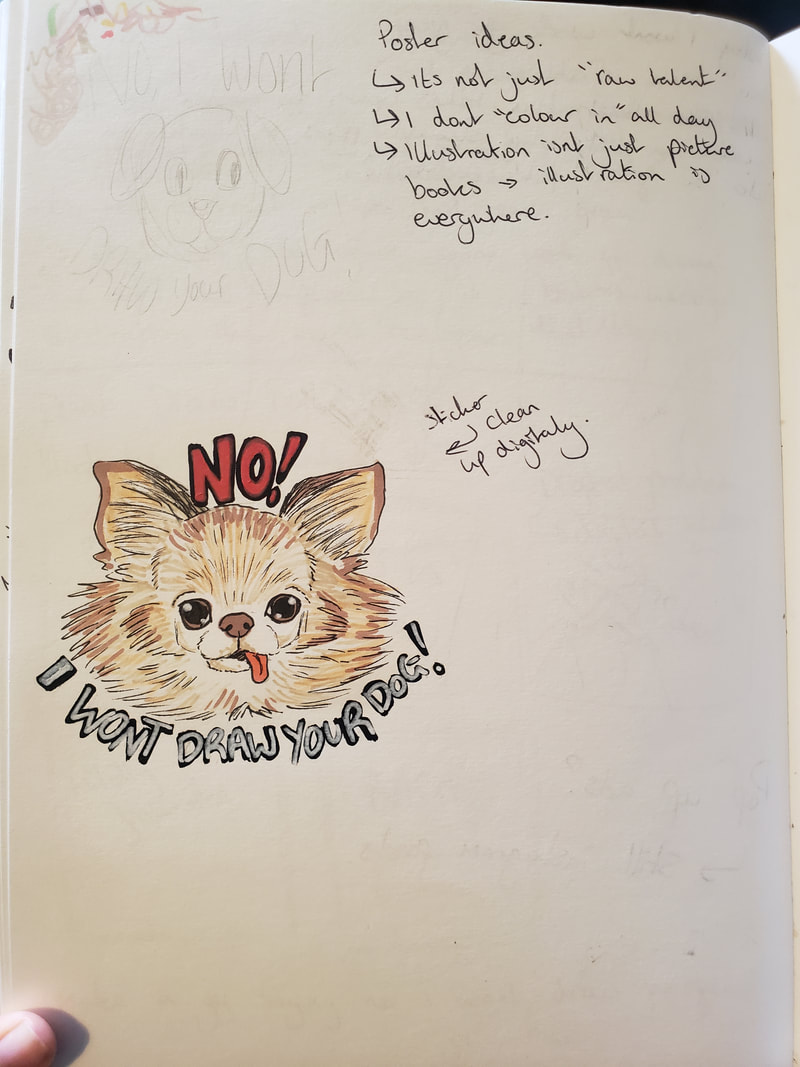 No I Wont
Draw your DOG!
Poster ideas.
↳ Its not just "raw talent"
↳ I dont "colour in" all day
↳ Illustration isnt just picture
books → illustration is
everywhere.
sticker
↵ clean
up digitaly.
NO!
I WONT DRAW YOUR DOG!